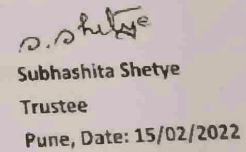 S. Shetye
Subhashita Shetye
Trustee
Pune, Date: 15/02/2022